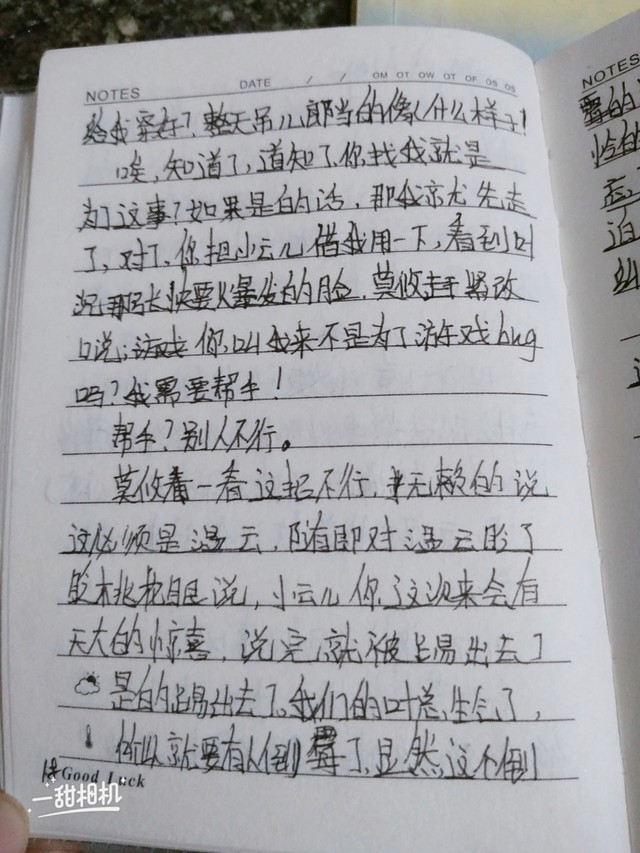 NOTES DATE / / OM OT OW OT OF OS OS
给我穿好？整天吊儿郎当的像什么样子！
唉，知道了，道知了你找我就是
为了这事？如果是的话，那我就先走
了，对了，你把小云儿借我用一下，看到叶
那张快要火爆发的脸，莫攸赶干紧改
口说：游戏你叫我来不是为了游戏bug
吗？我需要帮手！
帮手？别人不行。
莫攸着一看这招不行，无赖的说
这必须是温云，随有即对温云眨了
眨桃花眼说，小云儿你这次来会有
天大的惊喜，说完就被踢出去了
是的踢出去了，我们的叶总生气了，
所以就要有人倒霉了，显然这个倒
Good Luck
一甜相机
NOTES
霉的